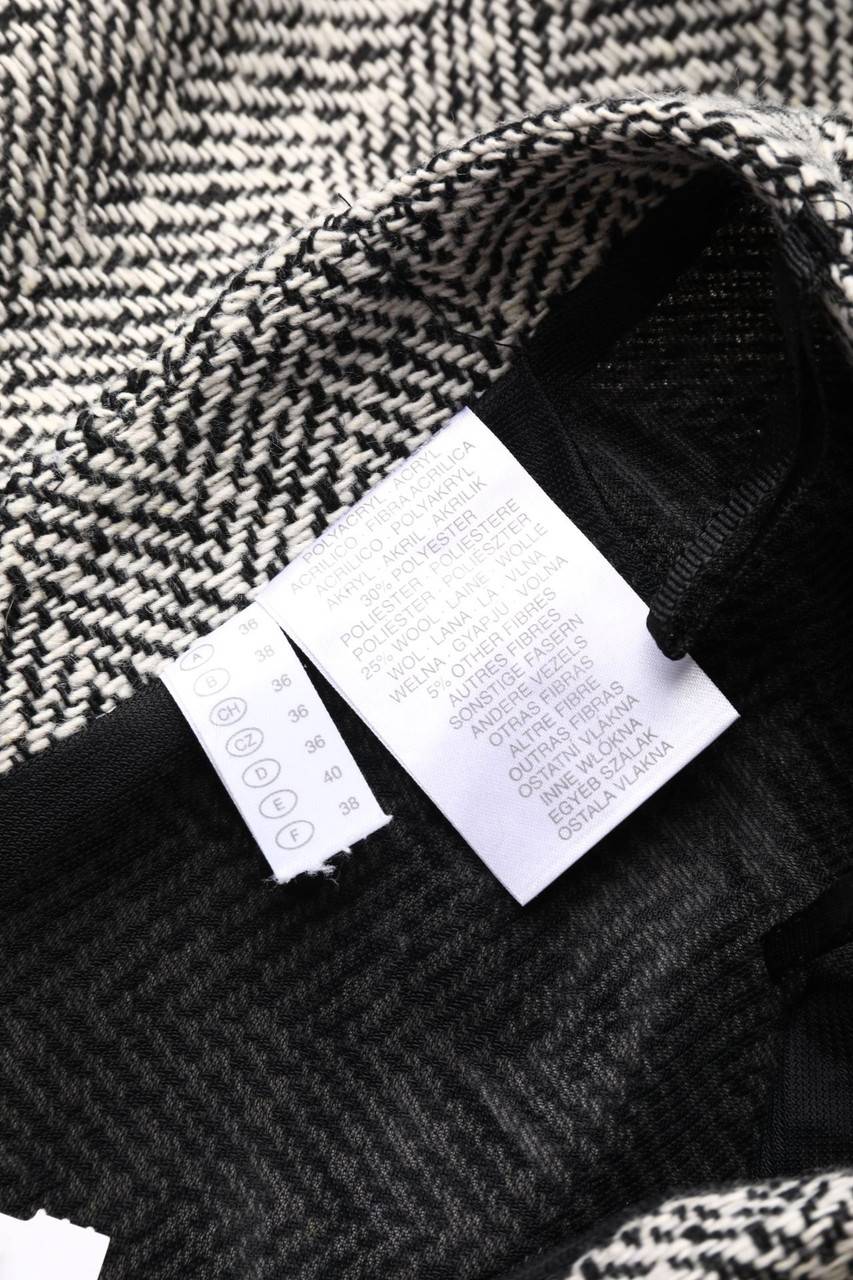 A 36
B 38
CH 36
CZ 36
D 36
E 40
F 38
POLYACRYL · ACRYL
ACRILICO · FIBRA ACRILICA
ACRILICO · POLYAKRYL
AKRYL · AKRIL · AKRILIK
30% POLYESTER
POLIESTER · POLIESTERE
POLIESTER · POLIESZTER
25% WOOL · LAINE · WOLLE
WOL · LANA · LA · VLNA
WEŁNA · GYAPJÚ · VOLNA
5% OTHER FIBRES
AUTRES FIBRES
SONSTIGE FASERN
ANDERE VEZELS
OTRAS FIBRAS
ALTRE FIBRE
OUTRAS FIBRAS
OSTATNÍ VLÁKNA
INNE WŁÓKNA
EGYÉB SZÁLAK
OSTALA VLAKNA